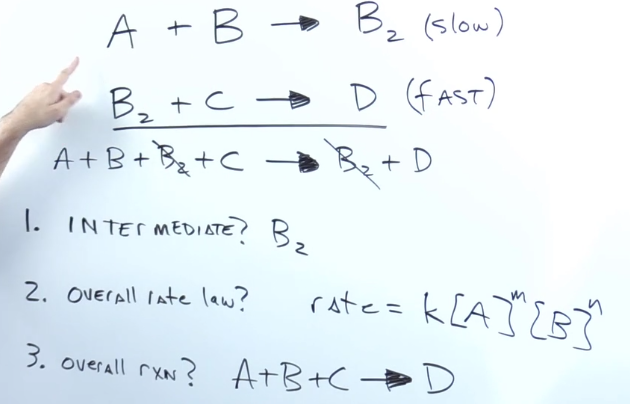 A + B → B₂ (slow)
B₂ + C → D (fAST)
A + B + B₂ + C → B₂ + D
1. INTERMEDIATE? B₂
2. OVERAll rate law? rate = k[A]ᵐ[B]ⁿ
3. OVERAll rxN? A+B+C → D